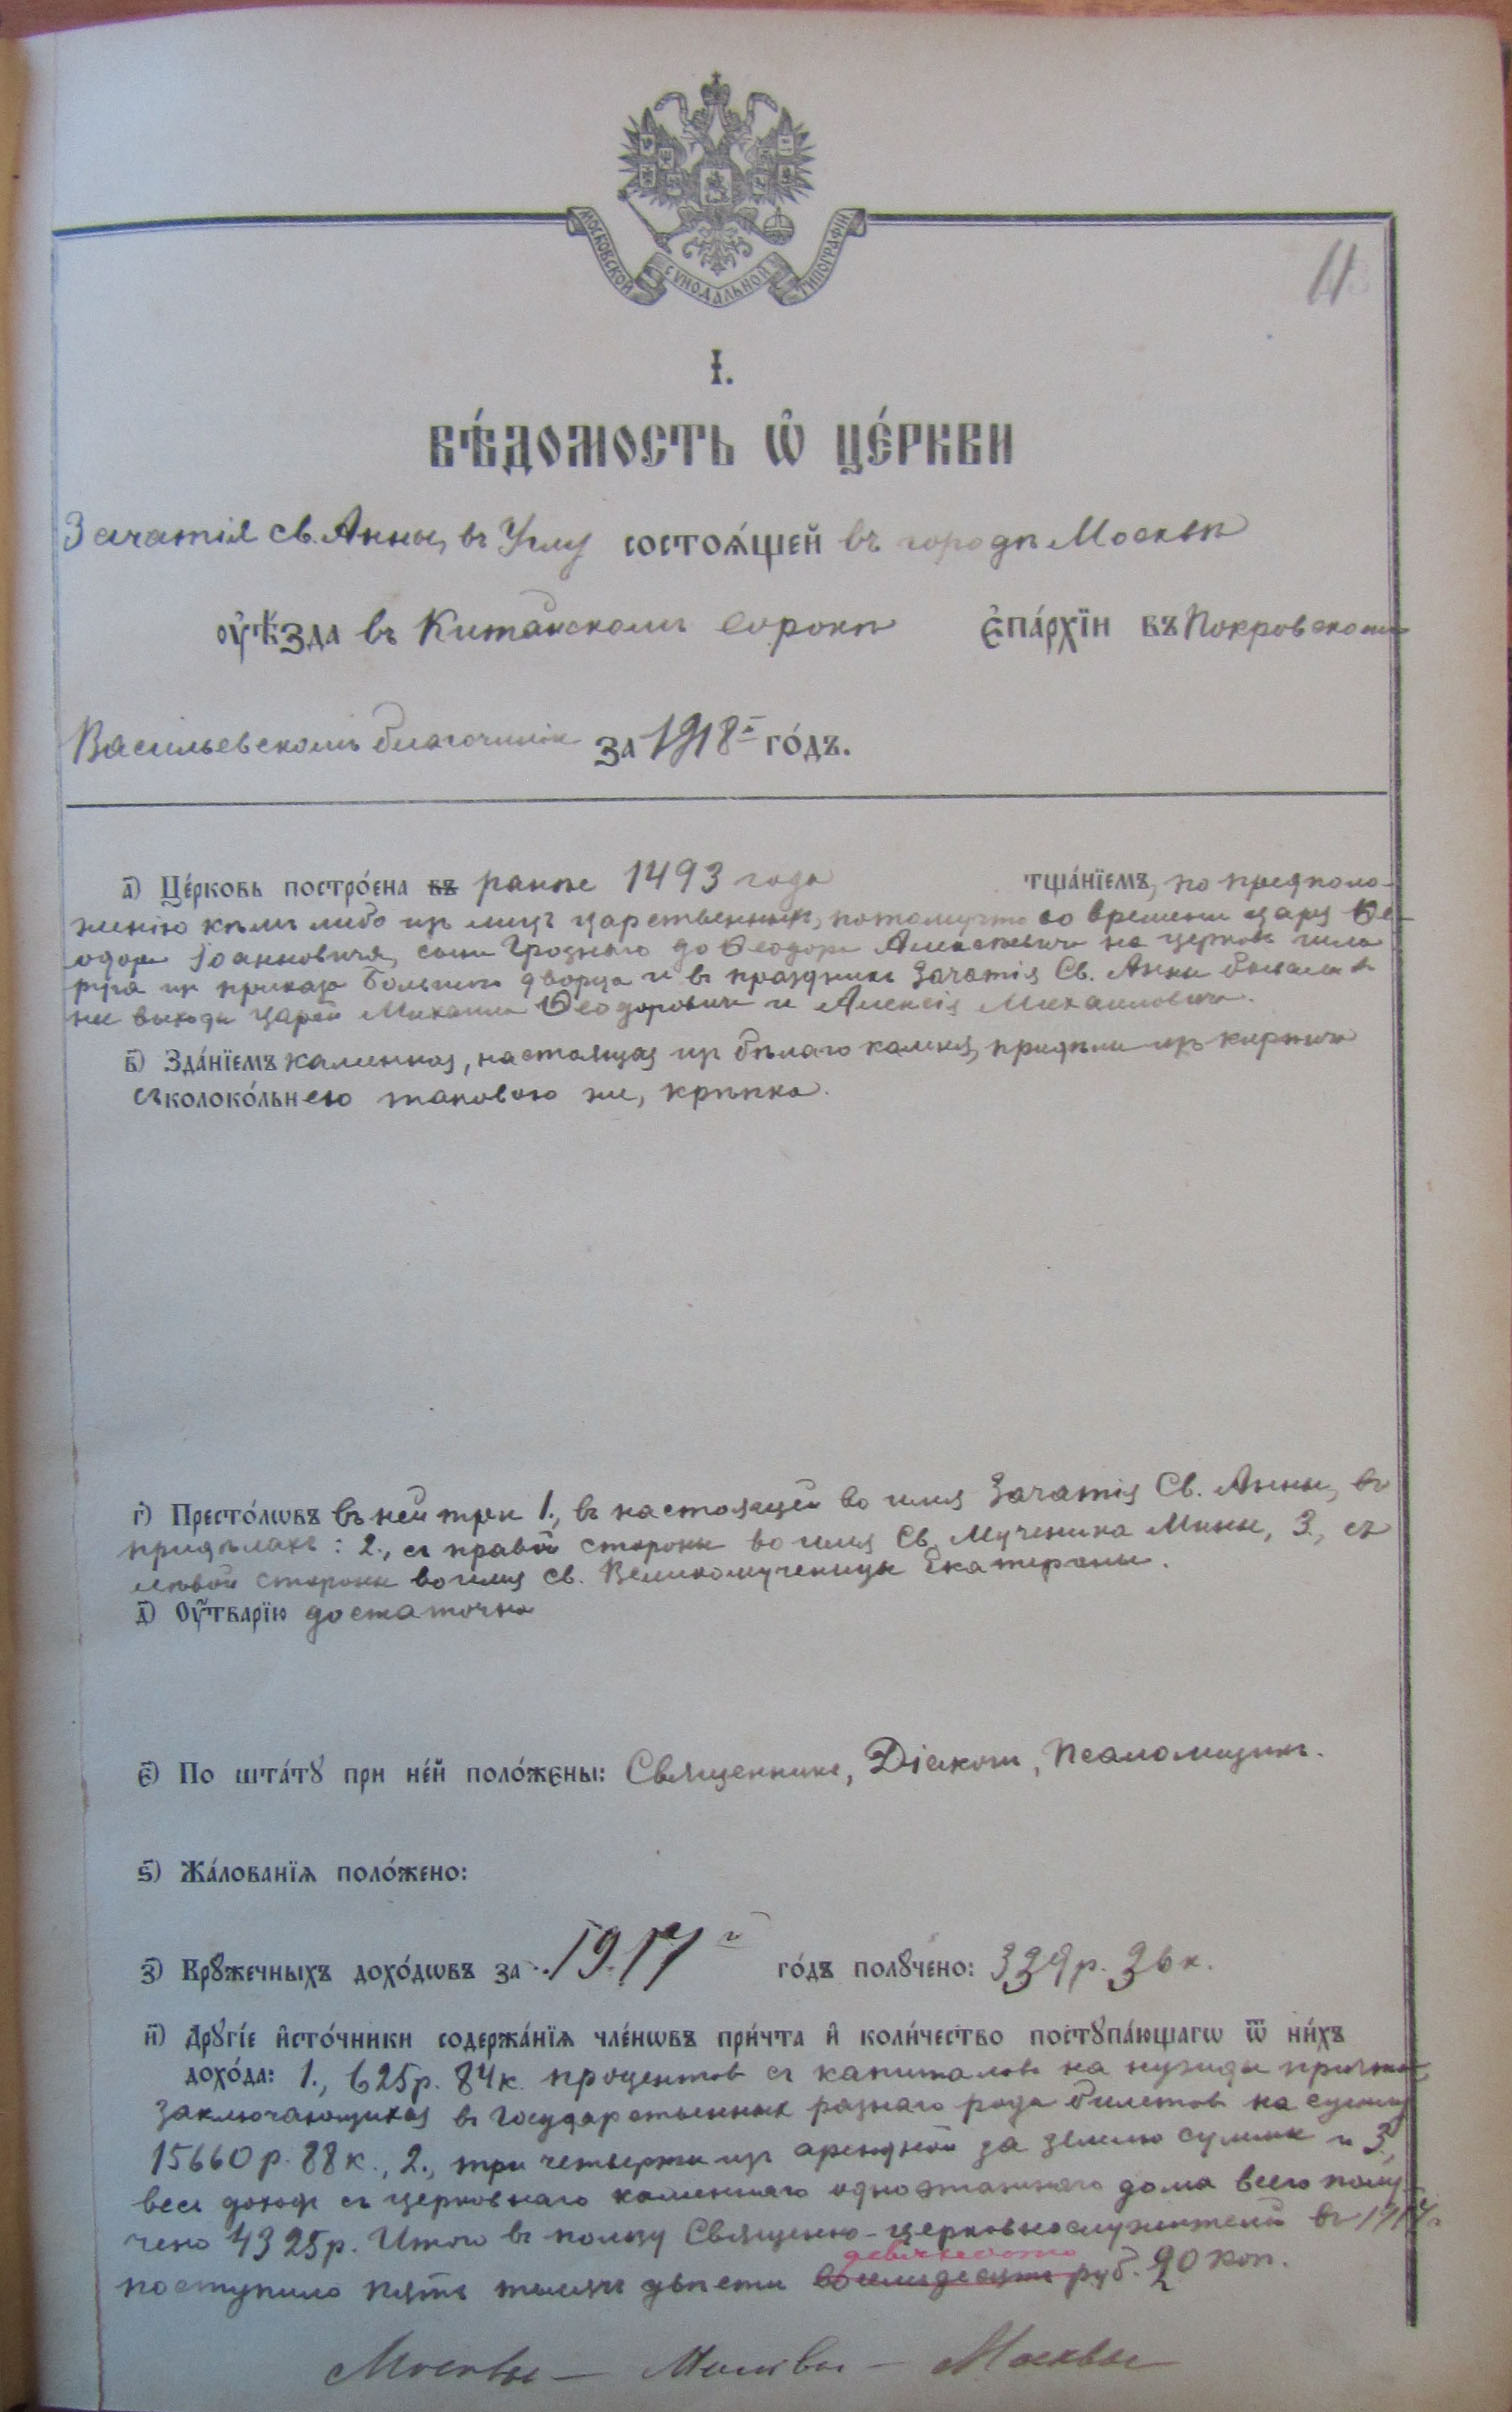 МОСКОВСКОЙ СУНОДАЛЬНОЙ ТИПОГРАФІИ
11
І.
ВѢ́ДОМОСТЬ Ѡ҆ ЦЕ́РКВИ
Зачатія св. Анны, въ Углу состоѧ́щей въ городѣ Москвѣ
ᲂу҆ѣ́зда въ Китайскомъ сорокѣ є҆па́рхїи въ Покровскомъ
Васильевскомъ благочиніи за 1918-й го́дъ.
а҃) Це́рковь постро́ена въ ранѣе 1493 года тща́нїемъ, по предполо-
женію кѣмъ либо изъ лицъ царственныхъ, потомучто со времени царя Ѳе-
одора Іоанновича, сына Грознаго до Ѳеодора Алексѣевича на церковь шла
руга из приказа большого дворца и въ праздникъ Зачатія Св. Анны бывали
выходы царей Михаила Ѳеодоровича и Алексія Михаиловича.
б҃) Зда́нїемъ каменная, настоящая изъ бѣлаго камня, придѣлы изъ кирпича
съ колоко́льнею таковою же, крѣпка.
г҃) Престо́лѡвъ въ ней три 1., въ настоящей во имя Зачатія Св. Анны, въ
придѣлахъ: 2., съ правой стороны во имя Св. Мученика Мины, 3., съ
лѣвой стороны во имя св. Великомученицы Екатерины.
д҃) Оу҆́тварїю достаточна
є҃) По шта́тꙋ при не́й поло́жены: Священникъ, Діаконъ, Псаломщикъ.
ѕ҃) Жа́лованїѧ поло́жено:
з҃) Крꙋ́жечныхъ дохо́дѡвъ за 1917й го́дъ полꙋ́чено: 339 р. 36 к.
и҃) Дрꙋгі́е и҆сто́чники содержа́нїѧ чле́нѡвъ при́чта и҆ коли́чество постꙋпа́ющагѡ ѿ ни́хъ
дохо́да: 1., 625 р. 84 к. процентовъ съ капиталовъ на нужды причта
заключающихся въ Государственныхъ разнаго рода билетовъ на сумму
15660 р. 88 к., 2., три четверти изъ арендной за землю суммы и 3.,
весь доходъ съ церковнаго каменнаго одноэтажнаго дома всего полу-
чено 4325 р. Итого въ пользу Священно-церковнослужителей въ 1917 г.
девяносто
поступило пять тысячъ двѣсти восемьдесятъ руб. 20 коп.
Москвы — Москвы — Москвы